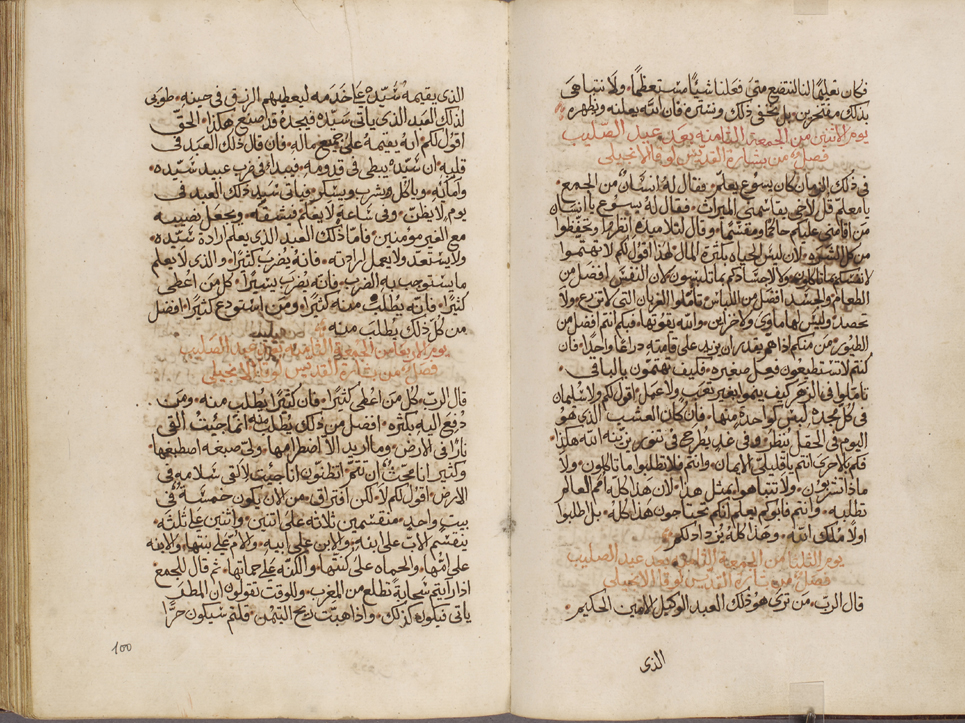 فكان تعليمًا لنا لننتفع متى فعلنا شيًا مستعظمًا ولا نتباهى
بذلك مفتخرين بل نخفي ذلك ونستره فان الله يعلنه ويظهره
يوم الاثنين من الجمعة الثامنه بعد عيد الصليب
فصل من بشارة القديس لوقا الانجيلي
في ذلك الزمان كان يسوع يعلم وقال له انسان من الجمع
يا معلم قل لاخي يقاسمني الميراث فقال له يسوع يا انسان
من اقامني عليكم حاكمًا ومقسّمًا وقال لتلاميذه انظروا وتحفظوا
من كل الشره لان ليس الحياه بكثرة المال لهذا اقول لكم لا تهتموا
لانفسكم بما تاكلون ولا لاجسادكم بما تلبسون لان النفس افضل من
الطعام والجسد افضل من اللباس تاملوا الغربان التي لا تزرع ولا
تحصد وليس لها ماوى ولا خزاين والله يقوتها فبكم انتم افضل من
الطيور من منكم اذا هم يقدر ان يزيد على قامته دراعًا واحدًا فان
كنتم لا تستطيعون فعل صغيره فكيف تهتمون بالباقي
تاملوا في الزهر كيف ينمو بغير تعب ولا عمل اقول لكم ولا سليمان
في كل مجده لبس كواحدة منها فان كان العشب الذي هو
اليوم في الحقل ينظر وفي غد يطرح في تنور يزينه الله هكذا
فكم بالاحرى انتم يا قليلي الايمان وانتم فلا تطلبوا ما تاكلون ولا
ماذا تشربون ولا تتباهوا بمثل هذا لان هذا كله امم العالم
تطلبه وانتم فابوكم يعلم انكم تحتاجون هذا كله بل اطلبوا
اولا ملك الله وهذا كله يزداد لكم
يوم الثلثا من الجمعة الثامنه بعد عيد الصليب
فصل من بشارة القديس لوقا الانجيلي
قال الرب من ترى هو ذلك العبد الوكيل الامين الحكيم
الذى
الذى يقيمه سيّده على خدمه ليعطيهم الرزق في حينه طوبى
لذلك العبد الذى ياتى سيّده فيجده قد صنع هكذا الحق
اقول لكم انه يقيمه على جميع ماله فان قال ذلك العبد في
قلبه ان سيّده يبطى في قدومه فيبدا في ضرب عبيد سيّده
وامائه وياكل ويشرب ويسكر فياتى سيد ذلك العبد في
يوم لا يظن وفي ساعة لا يعلم فيشقه ويجعل نصيبه
مع الغير مومنين فاما ذلك العبد الذى يعلم ارادة سيّده
ولا يستعد ولا يعمل ارادته فانه يضرب كثيرًا والذى لا يعلم
ما يستوجب به الضرب فانه يضرب يسيرًا كل من اعطى
كثيرًا فانه يطلب منه كثيرًا ومن استودع كثيرًا افضل
من كل ذلك يطلب منه
يوم الاربعا من الجمعة الثامنه من بعد عيد الصليب
فصل من بشارة القديس لوقا الانجيلي
قال الرب كل من اعطى كثيرًا فان كثيرًا يطلب منه ومن
دفع اليه بكثره افضل من ذلك يطلب منه انما جيت القى
نارًا في الارض وما اريد الا اضطرامها ولى صبغه اصطبغها
وكثيرًا انا محثٌ ان تتم اتظنون انا جيت لالقى سلامه في
الارض اقول لكم لا لكن افتراق من الان يكون خمسة في
بيت واحد منقسمين ثلاثه على اثنين واثنين على ثلثه
ينقسم الاب على ابنه والابن على ابيه والام على بنتها والابنه
على امها والحماه على كنتها والكنه على حماتها ثم قال للجمع
اذا رايتم سحابة تطلع من المغرب وللوقت تقولون ان المطر
ياتى فيكون كذلك واذا هبت ريح التيمن قلتم سيكون حرًا
100